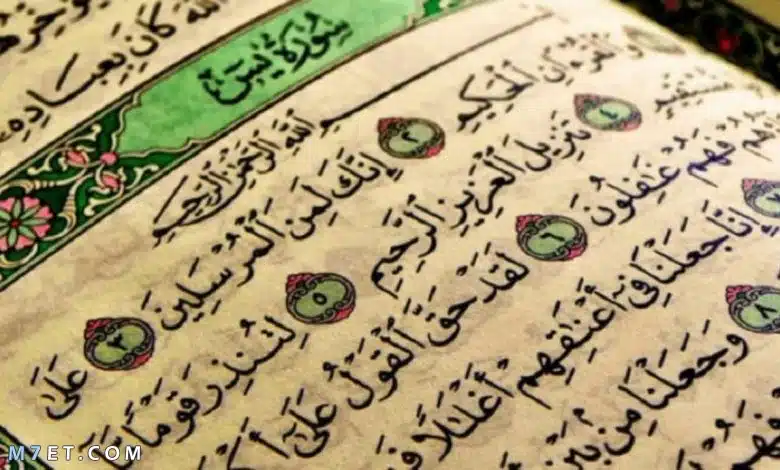 ٱللَّهَ كَانَ بِعِبَادِهِۦ
سُورَةُ يسٓ
بِسْمِ ٱللَّهِ ٱلرَّحْمَٰنِ ٱلرَّحِيمِ
وَٱلْقُرْءَانِ ٱلْحَكِيمِ ٢ إِنَّكَ لَمِنَ ٱلْمُرْسَلِينَ ٣ عَلَىٰ
مُّسْتَقِيمٍ ٤ تَنزِيلَ ٱلْعَزِيزِ ٱلرَّحِيمِ ٥ لِتُنذِرَ قَوْمًا مَّآ
فَهُمْ غَٰفِلُونَ ٦ لَقَدْ حَقَّ ٱلْقَوْلُ عَلَىٰٓ
إِنَّا جَعَلْنَا فِىٓ أَعْنَٰقِهِمْ أَغْلَٰلًا
٨ وَجَعَلْنَا مِنۢ بَيْنِ
M7ET.COM